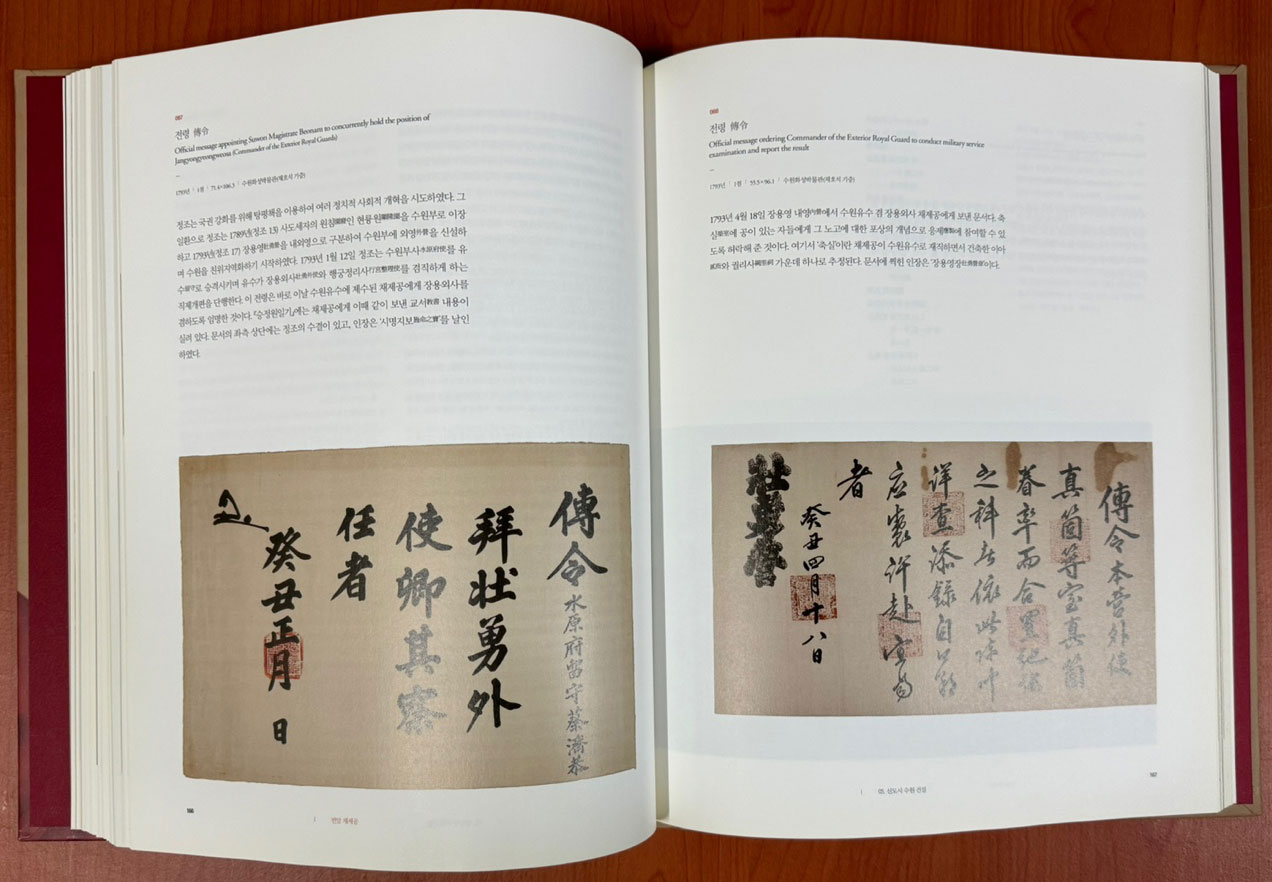 087
전령 傳令
Official message appointing Suwon Magistrate Beonam to concurrently hold the position of
Jangyongyeongweosa (Commander of the Exterior Royal Guards)
1793년 | 1점 | 71.4×106.3 | 수원화성박물관(채호석 기증)
정조는 국권 강화를 위해 탕평책을 이용하여 여러 정치적 사회적 개혁을 시도하였다. 그
일환으로 정조는 1789년(정조 13) 사도세자의 원침園寢인 현륭원顯隆園을 수원부로 이장
하고 1793년(정조 17) 장용영壯勇營을 내외영으로 구분하여 수원부에 외영外營을 신설하
며 수원을 친위지역화하기 시작하였다. 1793년 1월 12일 정조는 수원부사水原府使를 유
수留守로 승격시키며 유수가 장용외사壯勇外使와 행궁정리사行宮整理使를 겸직하게 하는
직제개편을 단행한다. 이 전령은 바로 이날 수원유수에 제수된 채제공에게 장용외사를
겸하도록 임명한 것이다. 『승정원일기』에는 채제공에게 이때 같이 보낸 교서敎書 내용이
실려 있다. 문서의 좌측 상단에는 정조의 수결이 있고, 인장은 '시명지보施命之寶'를 날인
하였다.
傳令 水原府留守蔡濟恭
拜壯勇外
使卿其察
任者
癸丑正月 日
166
| 번암 채제공
088
전령 傳令
Official message ordering Commander of the Exterior Royal Guard to conduct military service
examination and report the result
1793년 | 1점 | 55.5×96.1 | 수원화성박물관(채호석 기증)
1793년 4월 18일 장용영 내영內營에서 수원유수 겸 장용외사 채제공에게 보낸 문서다. 축
실築室에 공이 있는 자들에게 그 노고에 대한 포상의 개념으로 응제應製에 참여할 수 있
도록 허락해 준 것이다. 여기서 '축실'이란 채제공이 수원유수로 재직하면서 건축한 이아
貳衙와 궐리사闕里祠 가운데 하나로 추정된다. 문서에 찍힌 인장은 '장용영장壯勇營章'이다.
傳令本營外使
真箇等室真箇
眷率而合置
之科者依此
詳查添錄自
应製許赴宜
者
癸丑四月十八日
壯勇營
| 05. 신도시 수원 건설
167